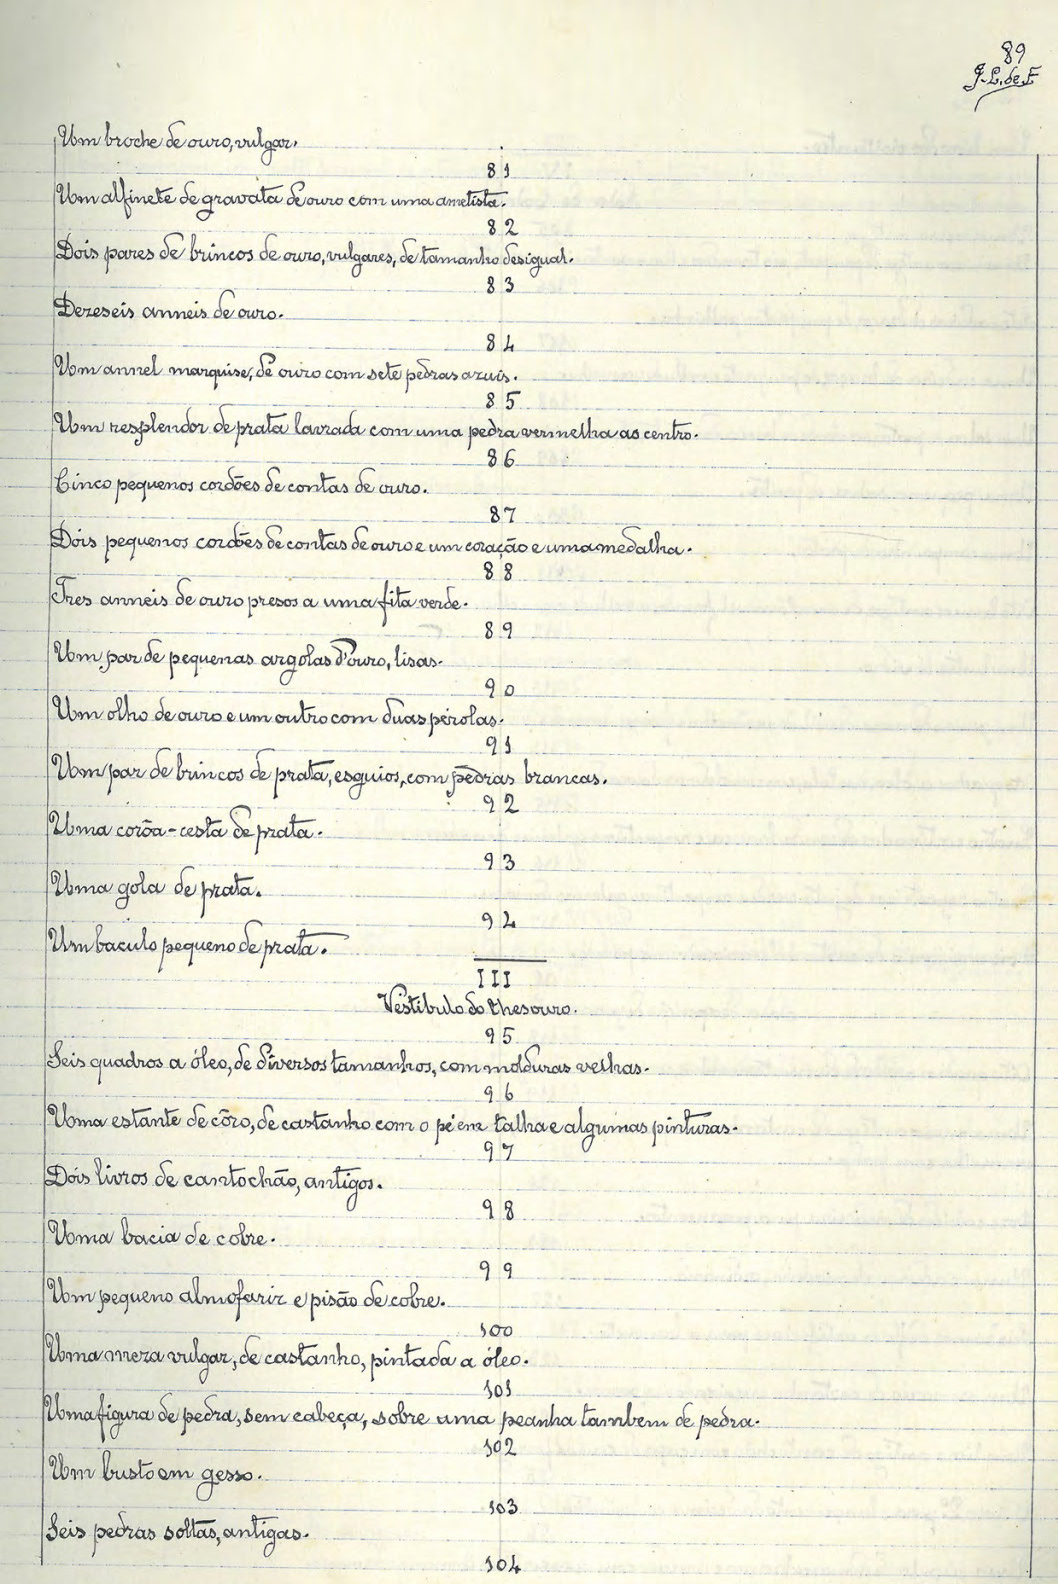 89
J. L. de F
Um broche de ouro, vulgar.
81
Um alfinete de gravata de ouro com uma ametista.
82
Dois pares de brincos de ouro, vulgares, de tamanho desigual.
83
Dezeseis anneis de ouro.
84
Um annel marquise, de ouro com sete pedras azuis.
85
Um resplendor de prata lavrada com uma pedra vermelha ao centro.
86
Cinco pequenos cordões de contas de ouro.
87
Dois pequenos cordões de contas de ouro e um coração e uma medalha.
88
Tres anneis de ouro presos a uma fita verde.
89
Um par de pequenas argolas d'ouro, lisas.
90
Um olho de ouro e um outro com duas pérolas.
91
Um par de brincos de prata, esguios, com pedras brancas.
92
Uma corôa-cesta de prata.
93
Uma gola de prata.
94
Um baculo pequeno de prata.
III
Vestibulo do thesouro.
95
Seis quadros a óleo, de diversos tamanhos, com molduras velhas.
96
Uma estante de côro, de castanho com o pé em talha e algumas pinturas.
97
Dois livros de cantochão, antigos.
98
Uma bacia de cobre.
99
Um pequeno almofariz e pisão de cobre.
100
Uma meza vulgar, de castanho, pintada a óleo.
101
Uma figura de pedra, sem cabeça, sobre uma peanha tambem de pedra.
102
Um busto em gesso.
103
Seis pedras soltas, antigas.
104